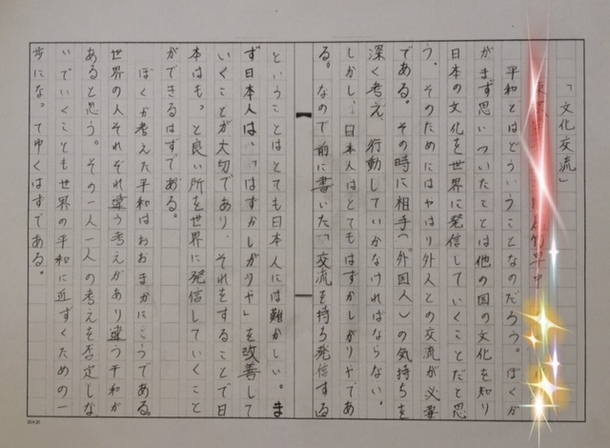 「文化交流」
平和とはどういうことなのだろう。ぼくが
がまず思いついたことは他の国の文化を知り
日本の文化を世界に発信していくことだと思
う。そのためにはやはり外人との交流が必要
である。その時に相手(外国人)の気持ちを
深く考え、行動していかなければならない。
しかし、日本人はとてもはずかしがりやであ
る。なので前に書いた「交流を持ち発信する
ということはとても日本人には難かしい。ま
ず日本人は、「はずかしがりや」を改善して
いくことが大切であり、それをすることで日
本はもっと良い所を世界に発信していくこと
ができるはずである。
ぼくが考えた平和はおおまかにこうである。
世界の人それぞれ違う考えがあり違う平和が
あると思う。その一人一人の考えを否定しな
いでいくことも世界の平和に近ずくための一
歩になってゆくはずである。
20×20